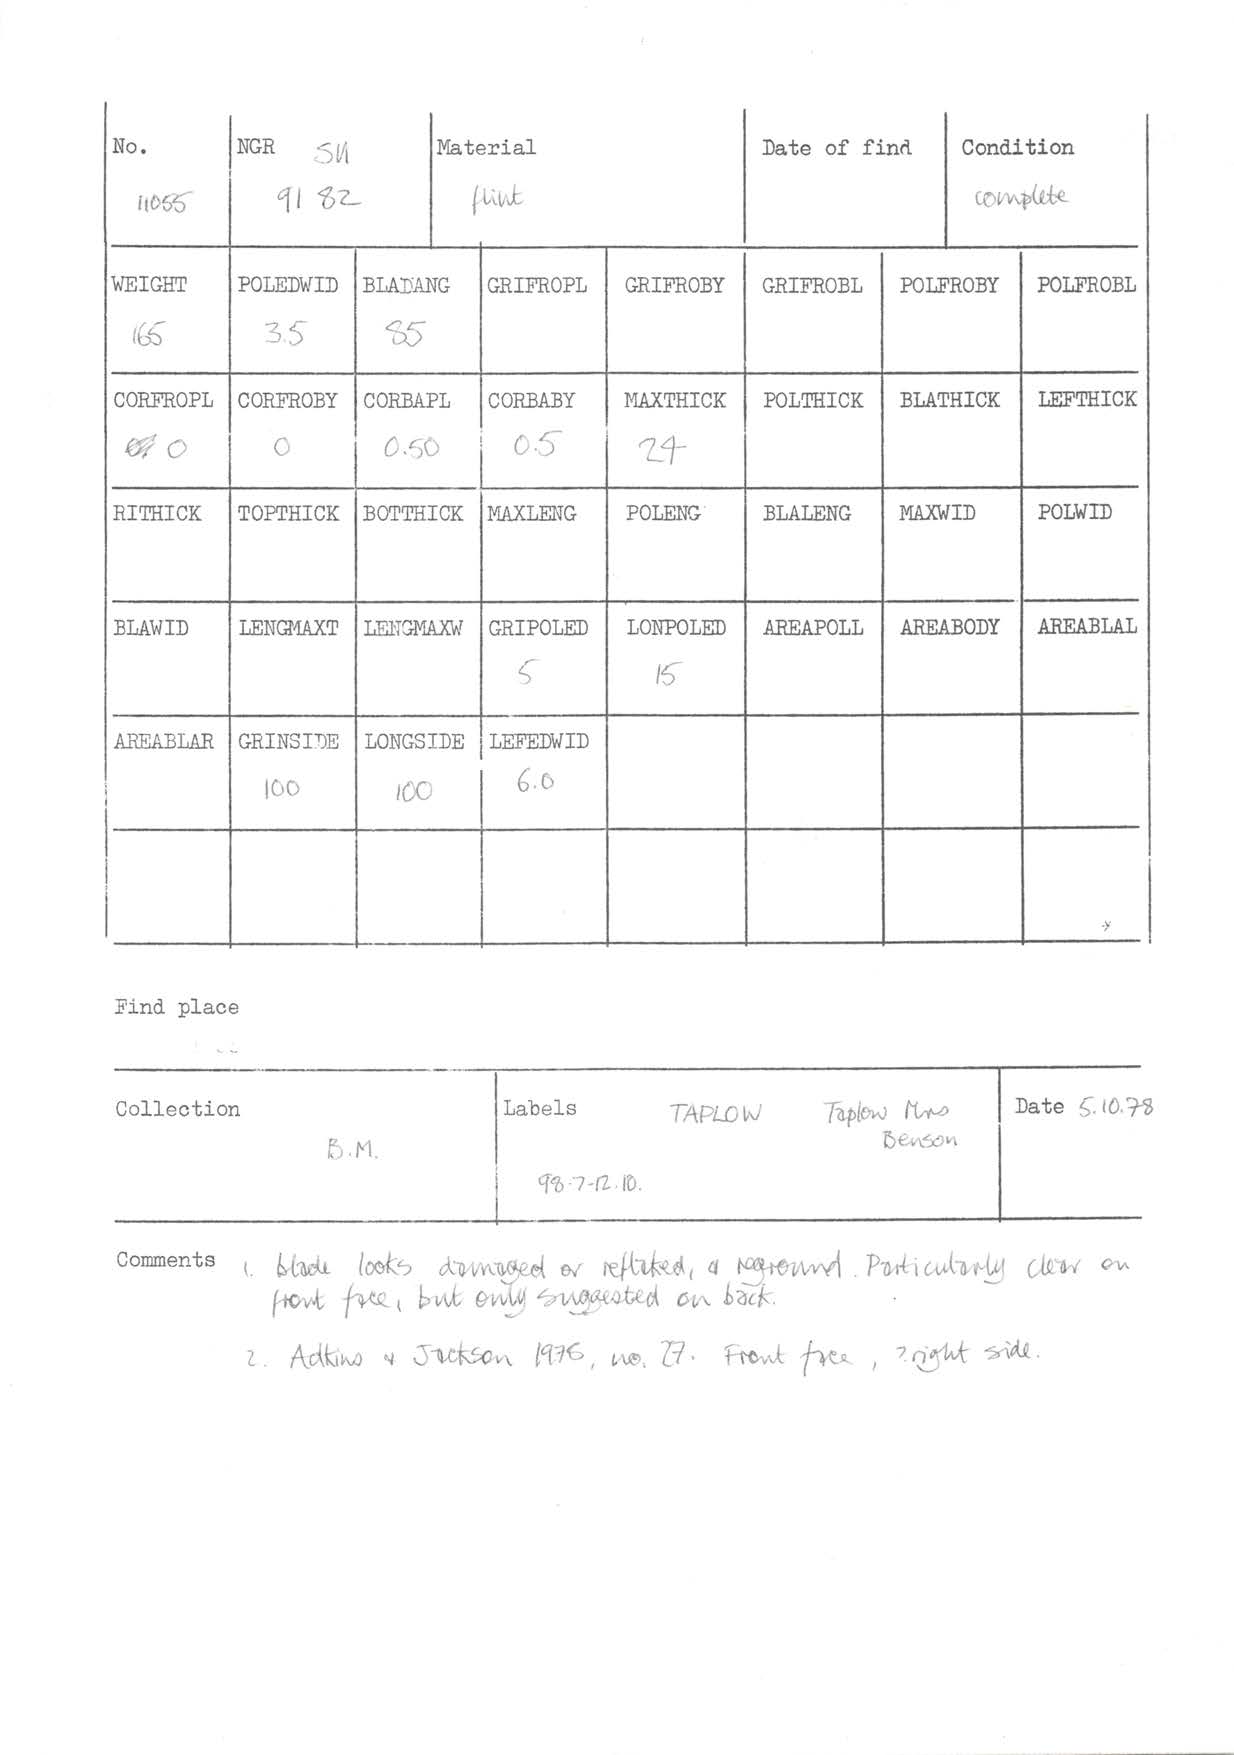 No. NGR SU Material Date of find Condition
11055 91 82 flint complete
WEIGHT POLEDWID BLADANG GRIFROPL GRIFROBY GRIFROBL POLFROBY POLFROBL
165 3.5 85
CORFROPL CORFROBY CORBAPL CORBABY MAXTHICK POLTHICK BLATHICK LEFTHICK
0 0 0.50 0.5 24
RITHICK TOPTHICK BOTTHICK MAXLENG POLENG BLALENG MAXWID POLWID
BLAWID LENGMAXT LENGMAXW GRIPOLED LONPOLED AREAPOLL AREABODY AREABLAL
5 15
AREABLAR GRINSIDE LONGSIDE LEFEDWID
100 100 6.0
Find place
Collection Labels TAPLOW Taplow Mrs Date 5.10.78
B.M. Benson
98.7-12.10.
Comments 1. blade looks damaged or reflaked, & reground. Particularly clear on
front face, but only suggested on back.
2. Adkins & Jackson 1976, no. 27. Front face, ?right side.